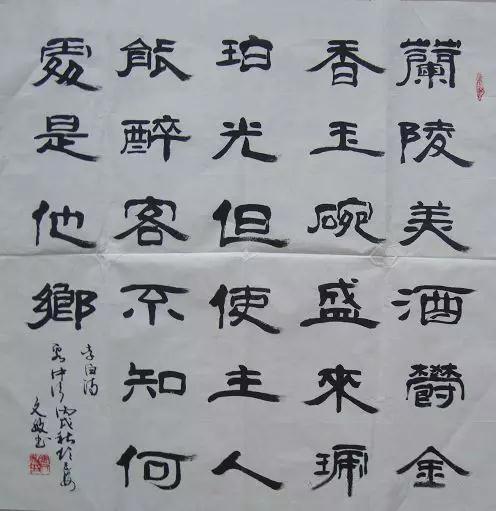 蘭陵美酒鬱金
香玉碗盛來琥
珀光但使主人
能醉客不知何
處是他鄉
李白詩
客中行丙戌秋於
書